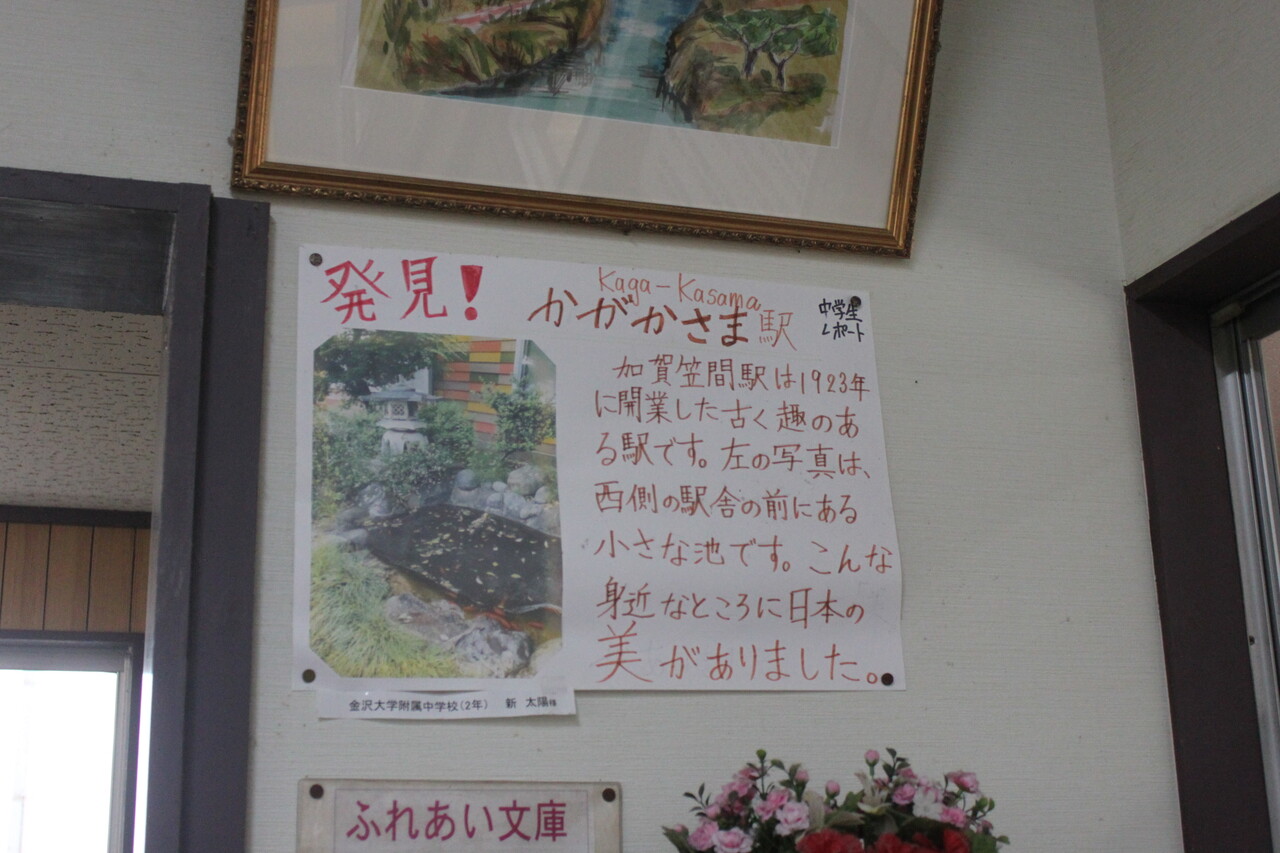 発見!
Kaga-Kasama
かがかさま駅
中学生
レポート
加賀笠間駅は1923年
に開業した古く趣のあ
る駅です。左の写真は、
西側の駅舎の前にある
小さな池です。こんな
身近なところに日本の
美がありました。
金沢大学附属中学校(2年) 新 太陽様
ふれあい文庫